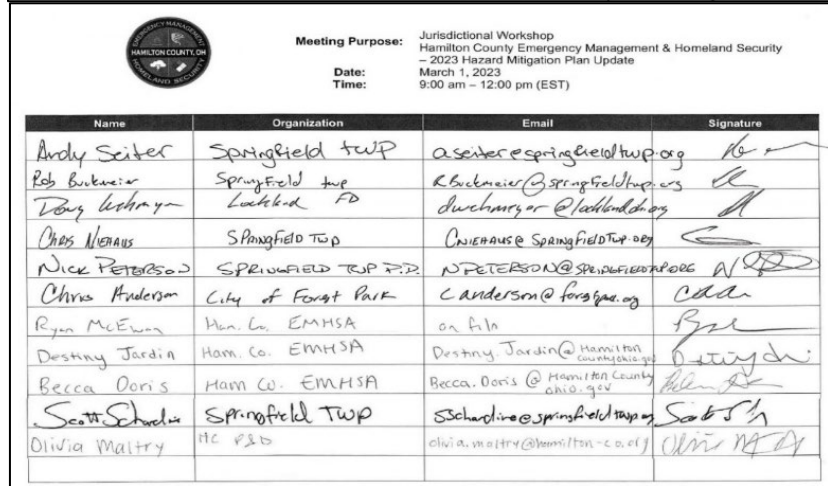 EMERGENCY MANAGEMENT
HAMILTON COUNTY, OH
HOMELAND SECURITY
Meeting Purpose: Jurisdictional Workshop
Hamilton County Emergency Management & Homeland Security
– 2023 Hazard Mitigation Plan Update
Date: March 1, 2023
Time: 9:00 am – 12:00 pm (EST)
Name Organization Email Signature
Andy Seiter Springfield twp aseiter@springfieldtwp.org
Rob Buckmeier Springfield twp RBuckmeier@springfieldtwp.org
Doug Wehmeyer Lockland FD
Chris Niehaus SPRINGFIELD TWP CNIEHAUS@SPRINGFIELDTWP.ORG
NICK PETERSON SPRINGFIELD TWP P.D. NPETERSON@SPRINGFIELDTWP.ORG
Chris Anderson City of Forest Park
Ryan McEwan Ham. Co. EMHSA on file
Destiny Jardin Ham. Co. EMHSA Destiny.Jardin@Hamilton
countyohio.gov
Becca Doris Ham Co. EMHSA Becca.Doris@HamiltonCounty
ohio.gov
Scott Schardine Springfield TWP sschardine@springfieldtwp.org
Olivia Maltry HC P&D olivia.maltry@hamilton-co.org